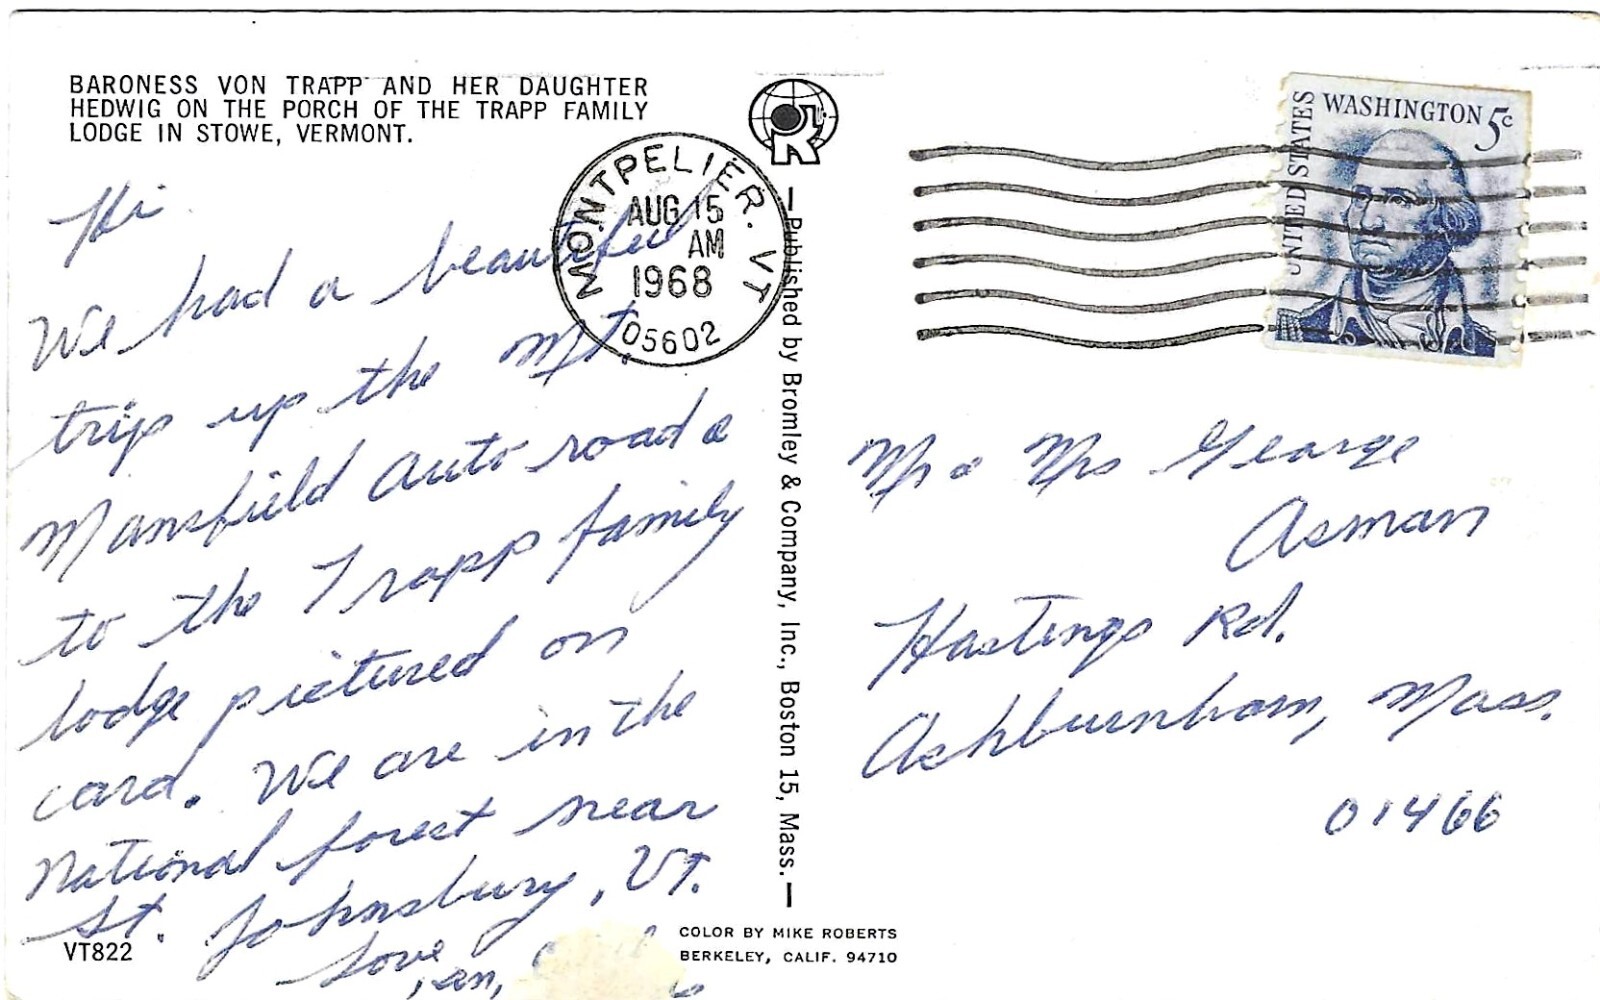 BARONESS VON TRAPP AND HER DAUGHTER
HEDWIG ON THE PORCH OF THE TRAPP FAMILY
LODGE IN STOWE, VERMONT.
Hi
We had a beautiful
trip up the Mt.
Mansfield Auto road &
to the Trapp family
lodge pictured on
card. We are in the
National forest near
St. Johnsbury, Vt.
Love
VT822
MONTPELIER. VT
AUG 15
AM
1968
05602
R
—Published by Bromley & Company, Inc., Boston 15, Mass.—
COLOR BY MIKE ROBERTS
BERKELEY, CALIF. 94710
UNITED STATES
WASHINGTON 5c
Mr & Mrs George
Asman
Hastings Rd.
Ashburnham, Mass.
01466